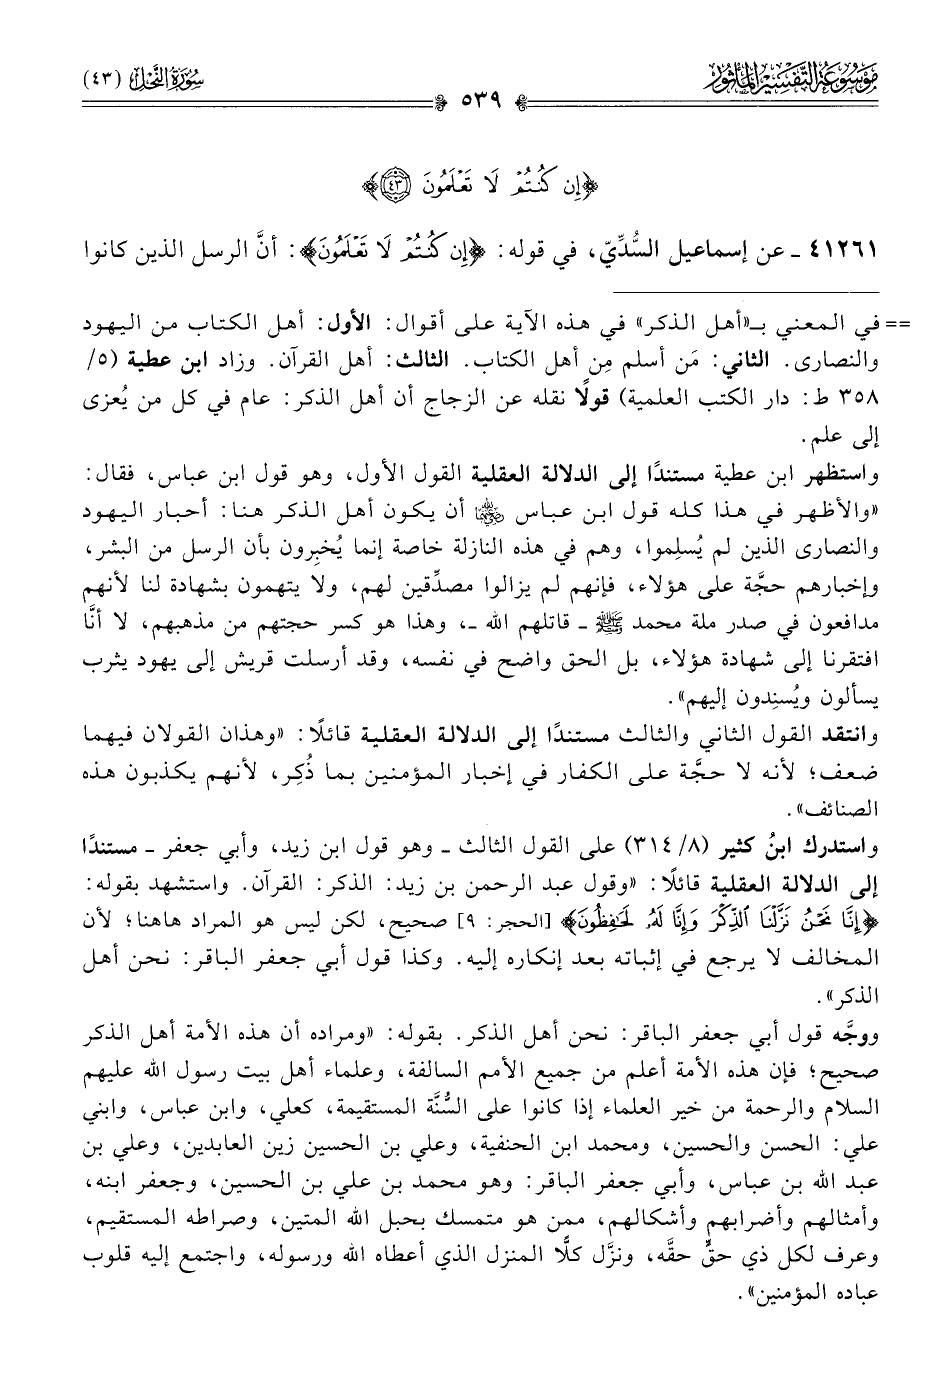 موسوعة التفسير المأثور
سورة النحل (٤٣)
٥٣٩
﴿إِن كُنتُمْ لَا تَعْلَمُونَ ٤٣﴾
٤١٢٦١ ـ عن إسماعيل السُّدِّيّ، في قوله: ﴿إِن كُنتُمْ لَا تَعْلَمُونَ﴾: أنَّ الرسل الذين كانوا
== في المعني بـ«أهل الذكر» في هذه الآية على أقوال: الأول: أهل الكتاب من اليهود
والنصارى. الثاني: مَن أسلم مِن أهل الكتاب. الثالث: أهل القرآن. وزاد ابن عطية (٥/
٣٥٨ ط: دار الكتب العلمية) قولًا نقله عن الزجاج أن أهل الذكر: عام في كل من يُعزى
إلى علم.
واستظهر ابن عطية مستندًا إلى الدلالة العقلية القول الأول، وهو قول ابن عباس، فقال:
«والأظهر في هذا كله قول ابن عباس ﵁ أن يكون أهل الذكر هنا: أحبار اليهود
والنصارى الذين لم يُسلِموا، وهم في هذه النازلة خاصة إنما يُخبِرون بأن الرسل من البشر،
وإخبارهم حجَّة على هؤلاء، فإنهم لم يزالوا مصدِّقين لهم، ولا يتهمون بشهادة لنا لأنهم
مدافعون في صدر ملة محمد ﷺ ـ قاتلهم الله ـ، وهذا هو كسر حجتهم من مذهبهم، لا أنَّا
افتقرنا إلى شهادة هؤلاء، بل الحق واضح في نفسه، وقد أرسلت قريش إلى يهود يثرب
يسألون ويُسنِدون إليهم».
وانتقد القول الثاني والثالث مستندًا إلى الدلالة العقلية قائلًا: «وهذان القولان فيهما
ضعف؛ لأنه لا حجَّة على الكفار في إخبار المؤمنين بما ذُكِر، لأنهم يكذبون هذه
الصنائف».
واستدرك ابنُ كثير (٨/ ٣١٤) على القول الثالث ـ وهو قول ابن زيد، وأبي جعفر ـ مستندًا
إلى الدلالة العقلية قائلًا: «وقول عبد الرحمن بن زيد: الذكر: القرآن. واستشهد بقوله:
﴿إِنَّا نَحْنُ نَزَّلْنَا ٱلذِّكْرَ وَإِنَّا لَهُۥ لَحَٰفِظُونَ﴾ [الحجر: ٩] صحيح، لكن ليس هو المراد هاهنا؛ لأن
المخالف لا يرجع في إثباته بعد إنكاره إليه. وكذا قول أبي جعفر الباقر: نحن أهل
الذكر».
ووجَّه قول أبي جعفر الباقر: نحن أهل الذكر. بقوله: «ومراده أن هذه الأمة أهل الذكر
صحيح؛ فإن هذه الأمة أعلم من جميع الأمم السالفة، وعلماء أهل بيت رسول الله عليهم
السلام والرحمة من خير العلماء إذا كانوا على السُّنَّة المستقيمة، كعلي، وابن عباس، وابني
علي: الحسن والحسين، ومحمد ابن الحنفية، وعلي بن الحسين زين العابدين، وعلي بن
عبد الله بن عباس، وأبي جعفر الباقر: وهو محمد بن علي بن الحسين، وجعفر ابنه،
وأمثالهم وأضرابهم وأشكالهم، ممن هو متمسك بحبل الله المتين، وصراطه المستقيم،
وعرف لكل ذي حقٍّ حقَّه، ونزَّل كلًّا المنزل الذي أعطاه الله ورسوله، واجتمع إليه قلوب
عباده المؤمنين».